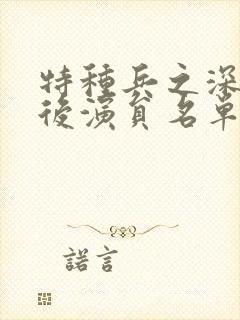 特種兵之深
後演員名單
諾言